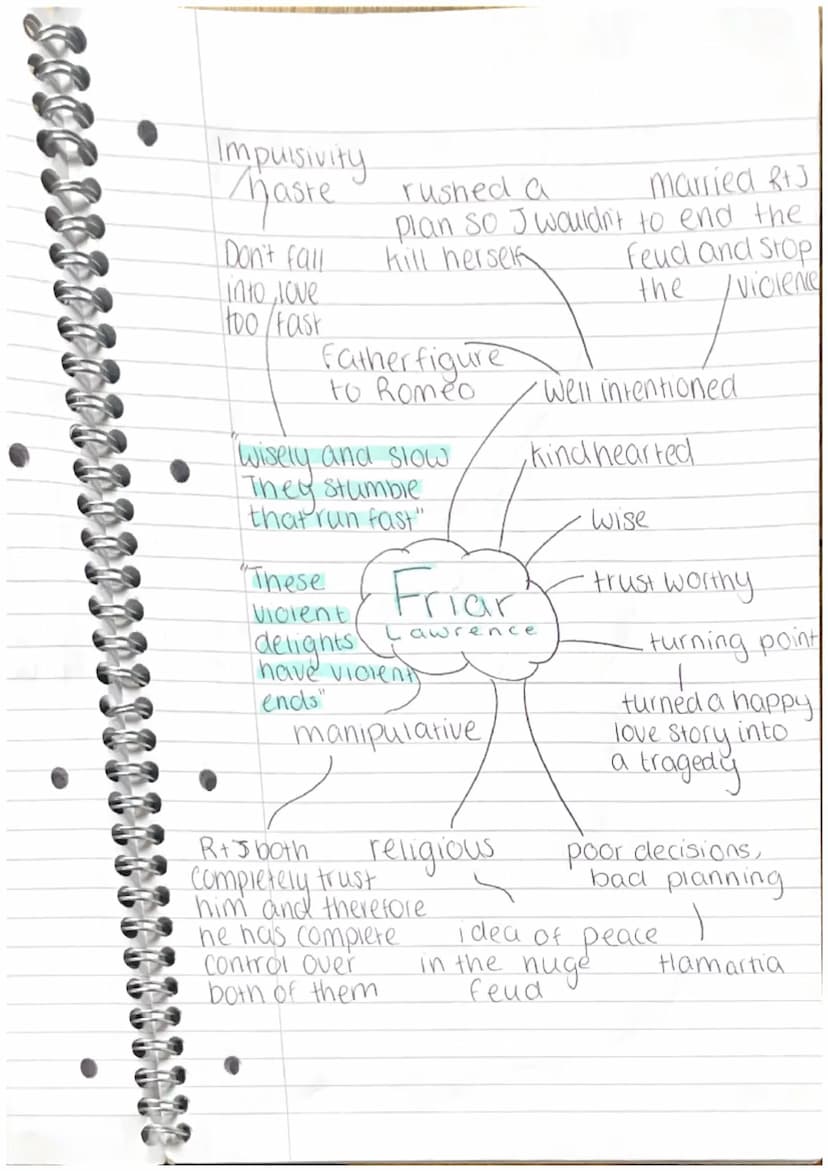 Impulsivity
/haste
Don't fall
into love
too fast
rushed a
plan so J wouldn't
kill herself
married R+J
to end the
feud and stop
the violence
Father figure
to Romeo
well intentioned
"wisely and slow
They stumble
that run fast"
kindhearted
wise
trust worthy
"These
violent
delights
have violent
ends"
Friar
Lawrence
turning point
turned a happy
love story into
a tragedy
manipulative
R+J both
completely trust
him and therefore
he has complete
control over
both of them
religious
idea of peace
in the huge
feud
poor decisions,
bad planning
Hamartia